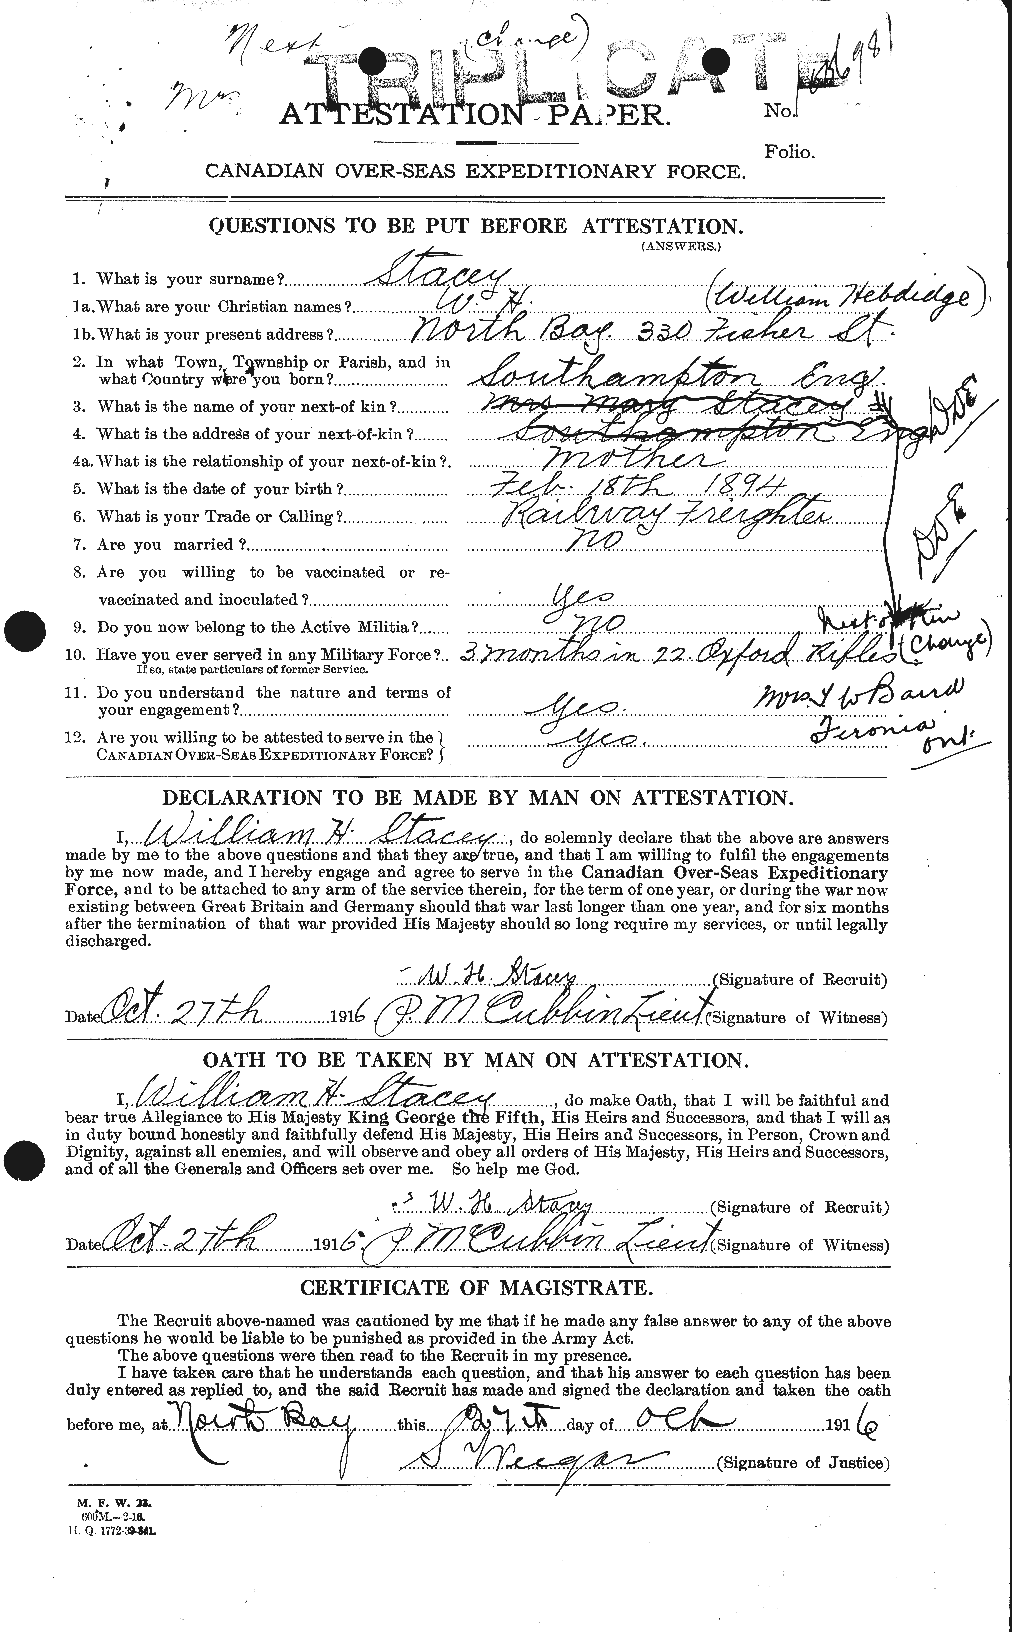 Next (Change)
TRIPLICATE
Mrs
ATTESTATION PAPER.
No.
Folio.
CANADIAN OVER-SEAS EXPEDITIONARY FORCE.
QUESTIONS TO BE PUT BEFORE ATTESTATION.
(ANSWERS.)
1. What is your surname? Stacey
1a. What are your Christian names? W. H. (William Hebdidge)
1b. What is your present address? North Bay. 330 Fisher St.
2. In what Town, Township or Parish, and in
what Country were you born? Southampton Eng.
3. What is the name of your next-of kin? Mrs Mary Stacey
4. What is the address of your next-of-kin? Southampton Eng
4a. What is the relationship of your next-of-kin?. Mother
5. What is the date of your birth? Feb. 18th 1894
6. What is your Trade or Calling? Railway Freighter
7. Are you married? no
8. Are you willing to be vaccinated or re-
vaccinated and inoculated? Yes
9. Do you now belong to the Active Militia? no
Next of Kin
10. Have you ever served in any Military Force? 3 months in 22 Oxford Rifles (Change)
If so, state particulars of former Service.
11. Do you understand the nature and terms of
your engagement? Yes.
Mrs. T W Baird
Feronia
Ont.
12. Are you willing to be attested to serve in the
CANADIAN OVER-SEAS EXPEDITIONARY FORCE? Yes.
DECLARATION TO BE MADE BY MAN ON ATTESTATION.
I, William H. Stacey, do solemnly declare that the above are answers
made by me to the above questions and that they are true, and that I am willing to fulfil the engagements
by me now made, and I hereby engage and agree to serve in the Canadian Over-Seas Expeditionary
Force, and to be attached to any arm of the service therein, for the term of one year, or during the war now
existing between Great Britain and Germany should that war last longer than one year, and for six months
after the termination of that war provided His Majesty should so long require my services, or until legally
discharged.
W. H. Stacey (Signature of Recruit)
Date Oct. 27th 1916 P. McCubbin Lieut (Signature of Witness)
OATH TO BE TAKEN BY MAN ON ATTESTATION.
I, William H. Stacey, do make Oath, that I will be faithful and
bear true Allegiance to His Majesty King George the Fifth, His Heirs and Successors, and that I will as
in duty bound honestly and faithfully defend His Majesty, His Heirs and Successors, in Person, Crown and
Dignity, against all enemies, and will observe and obey all orders of His Majesty, His Heirs and Successors,
and of all the Generals and Officers set over me. So help me God.
W. H. Stacey (Signature of Recruit)
Date Oct. 27th 1916 P McCubbin Lieut (Signature of Witness)
CERTIFICATE OF MAGISTRATE.
The Recruit above-named was cautioned by me that if he made any false answer to any of the above
questions he would be liable to be punished as provided in the Army Act.
The above questions were then read to the Recruit in my presence.
I have taken care that he understands each question, and that his answer to each question has been
duly entered as replied to, and the said Recruit has made and signed the declaration and taken the oath
before me, at North Bay this 27th day of Oct 1916
S Weegar (Signature of Justice)
M. F. W. 23.
600M.-2-16.
H. Q. 1772-39-841.